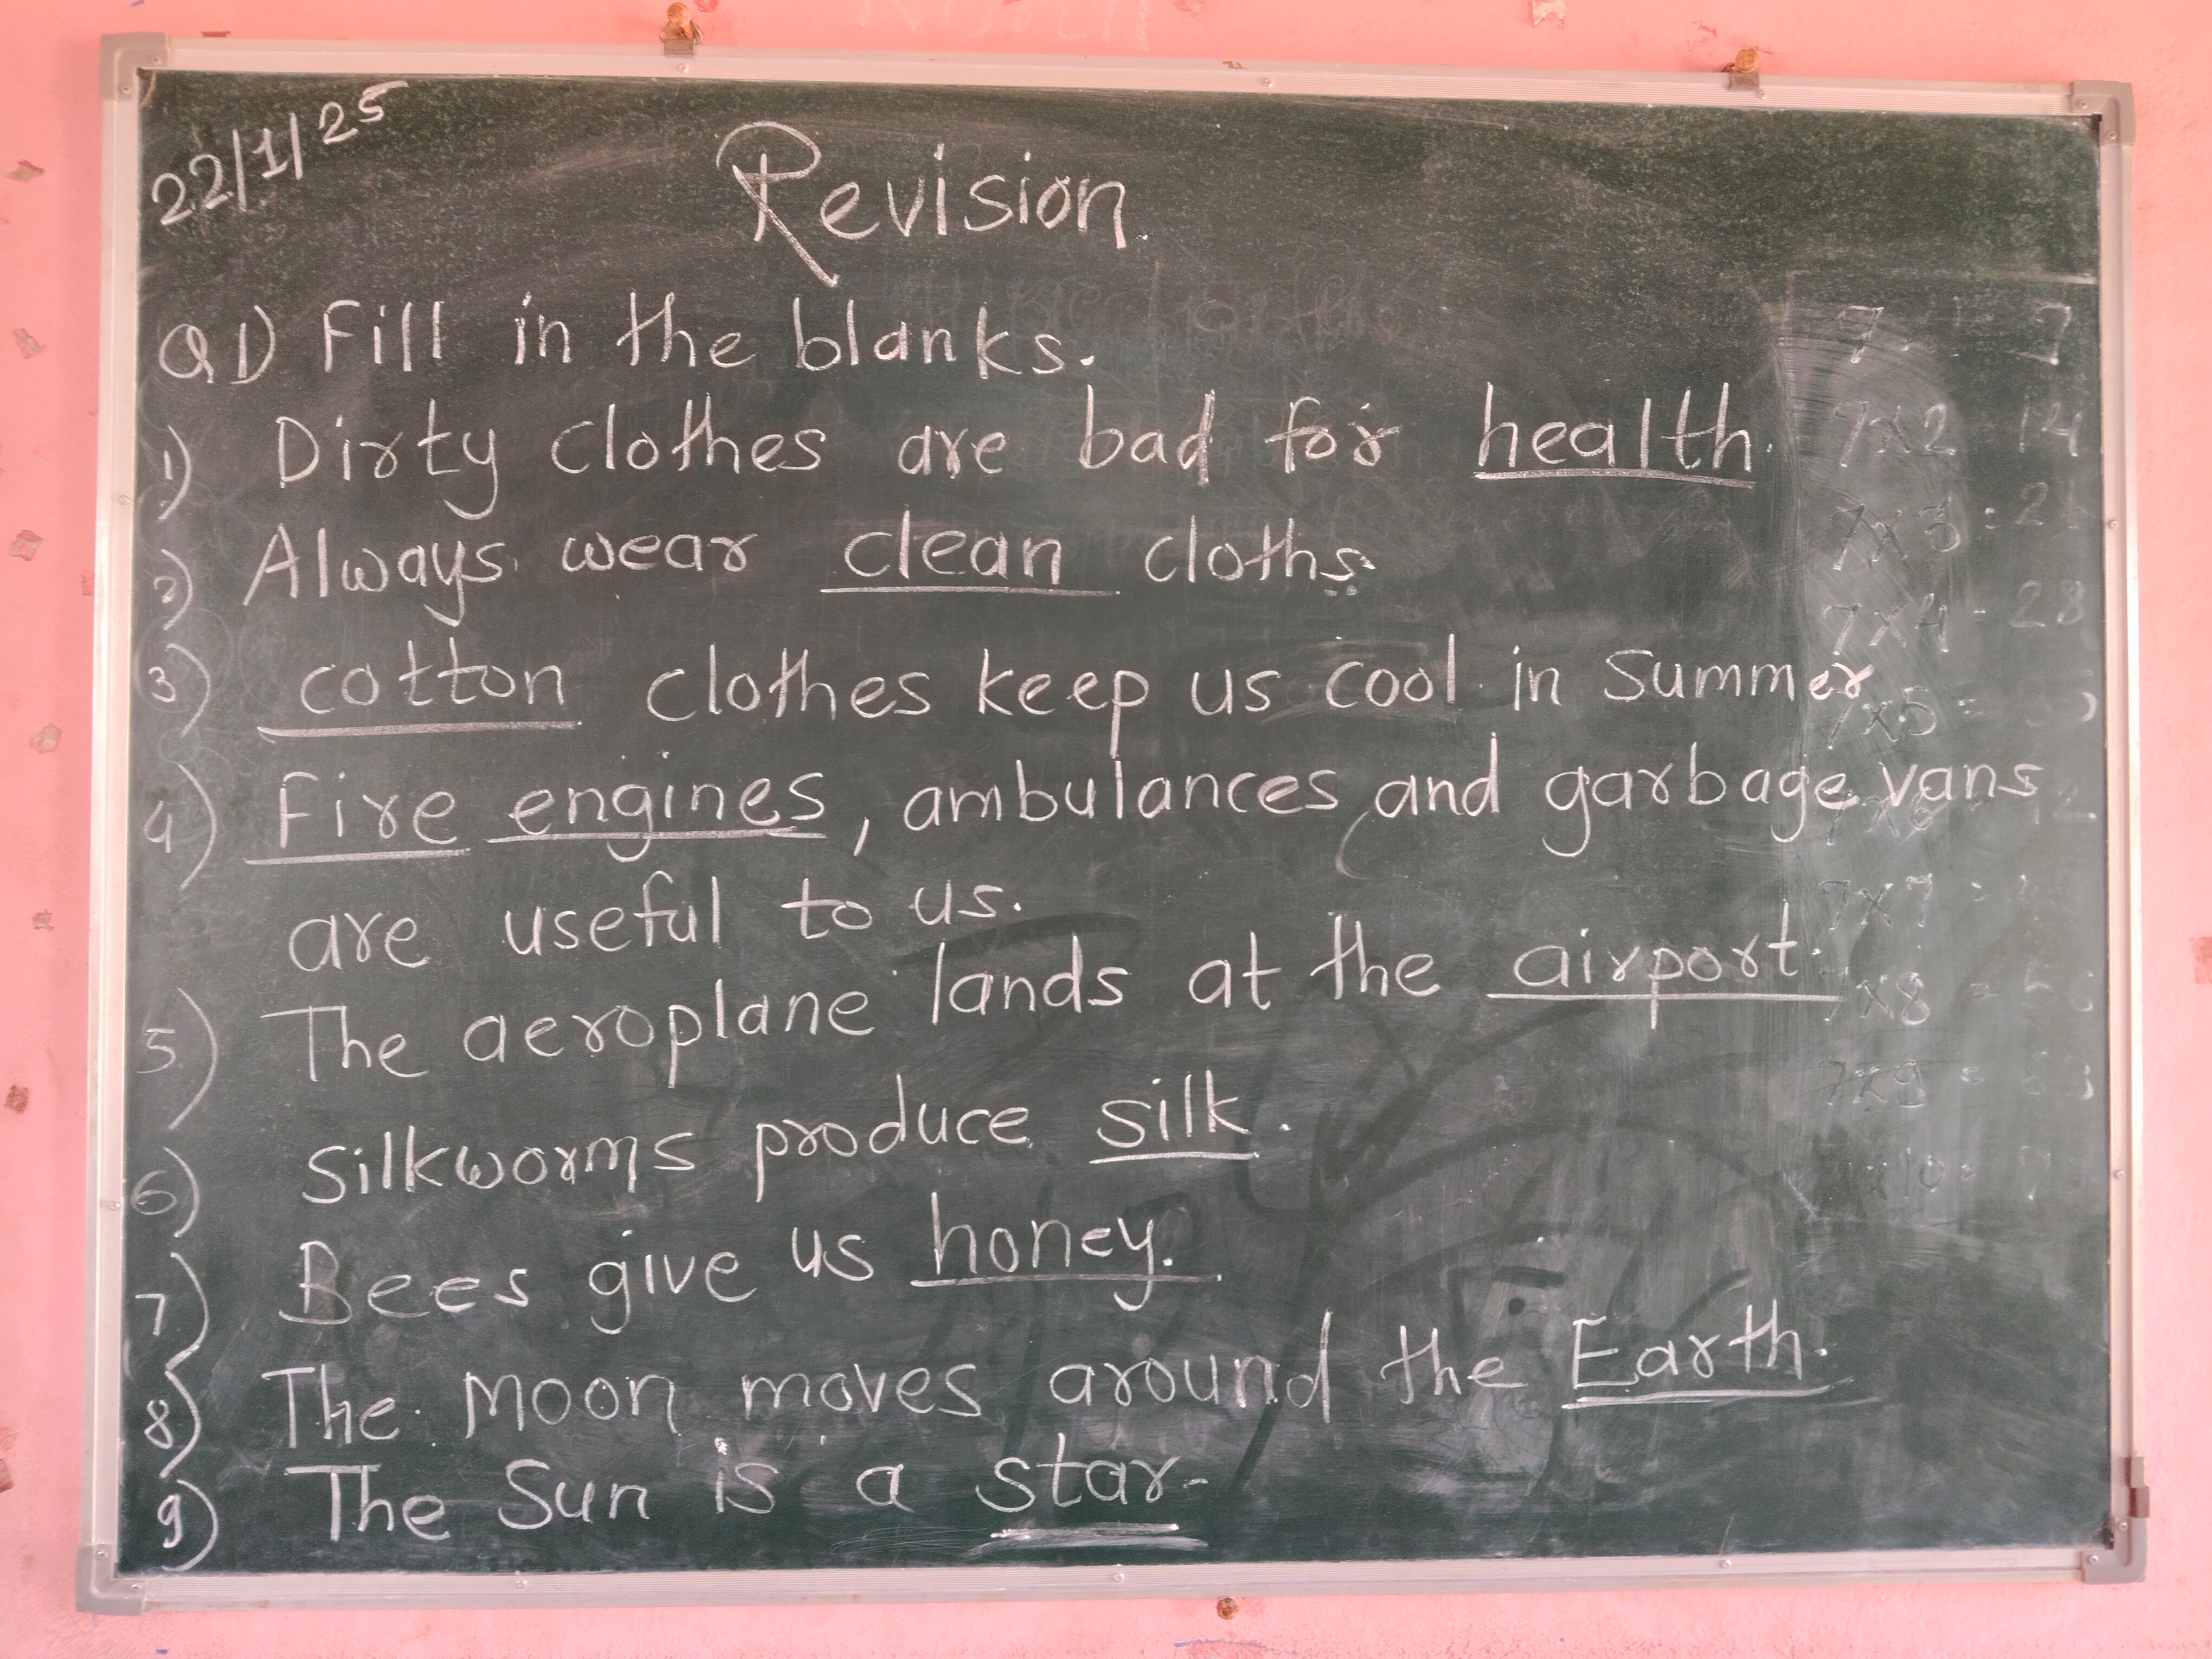 22/1/25
Revision.
Q1) Fill in the blanks.
1) Dirty clothes are bad for health.
2) Always wear clean cloths.
3) cotton clothes keep us cool in Summer
4) Fire engines, ambulances and garbage vans
are useful to us.
5) The aeroplane lands at the airport.
6) Silkworms produce silk.
7) Bees give us honey.
8) The Moon moves around the Earth.
9) The Sun is a star.
7 7
7x2 = 14
7x3 = 21
7x4 = 28
7x5 =
7x7 =
7x8 =
7x9 = 63
7x10 =